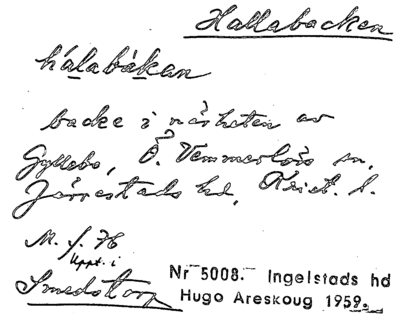 Hallabacken
hálabákan
backe i närheten av
Gyllebo, Ö. Vemmerlövs sn,
Järrestads hd, Krist. l.
M. f. H
Uppt. i
Smedstorp
Nr 5008. Ingelstads hd
Hugo Areskoug 1959.